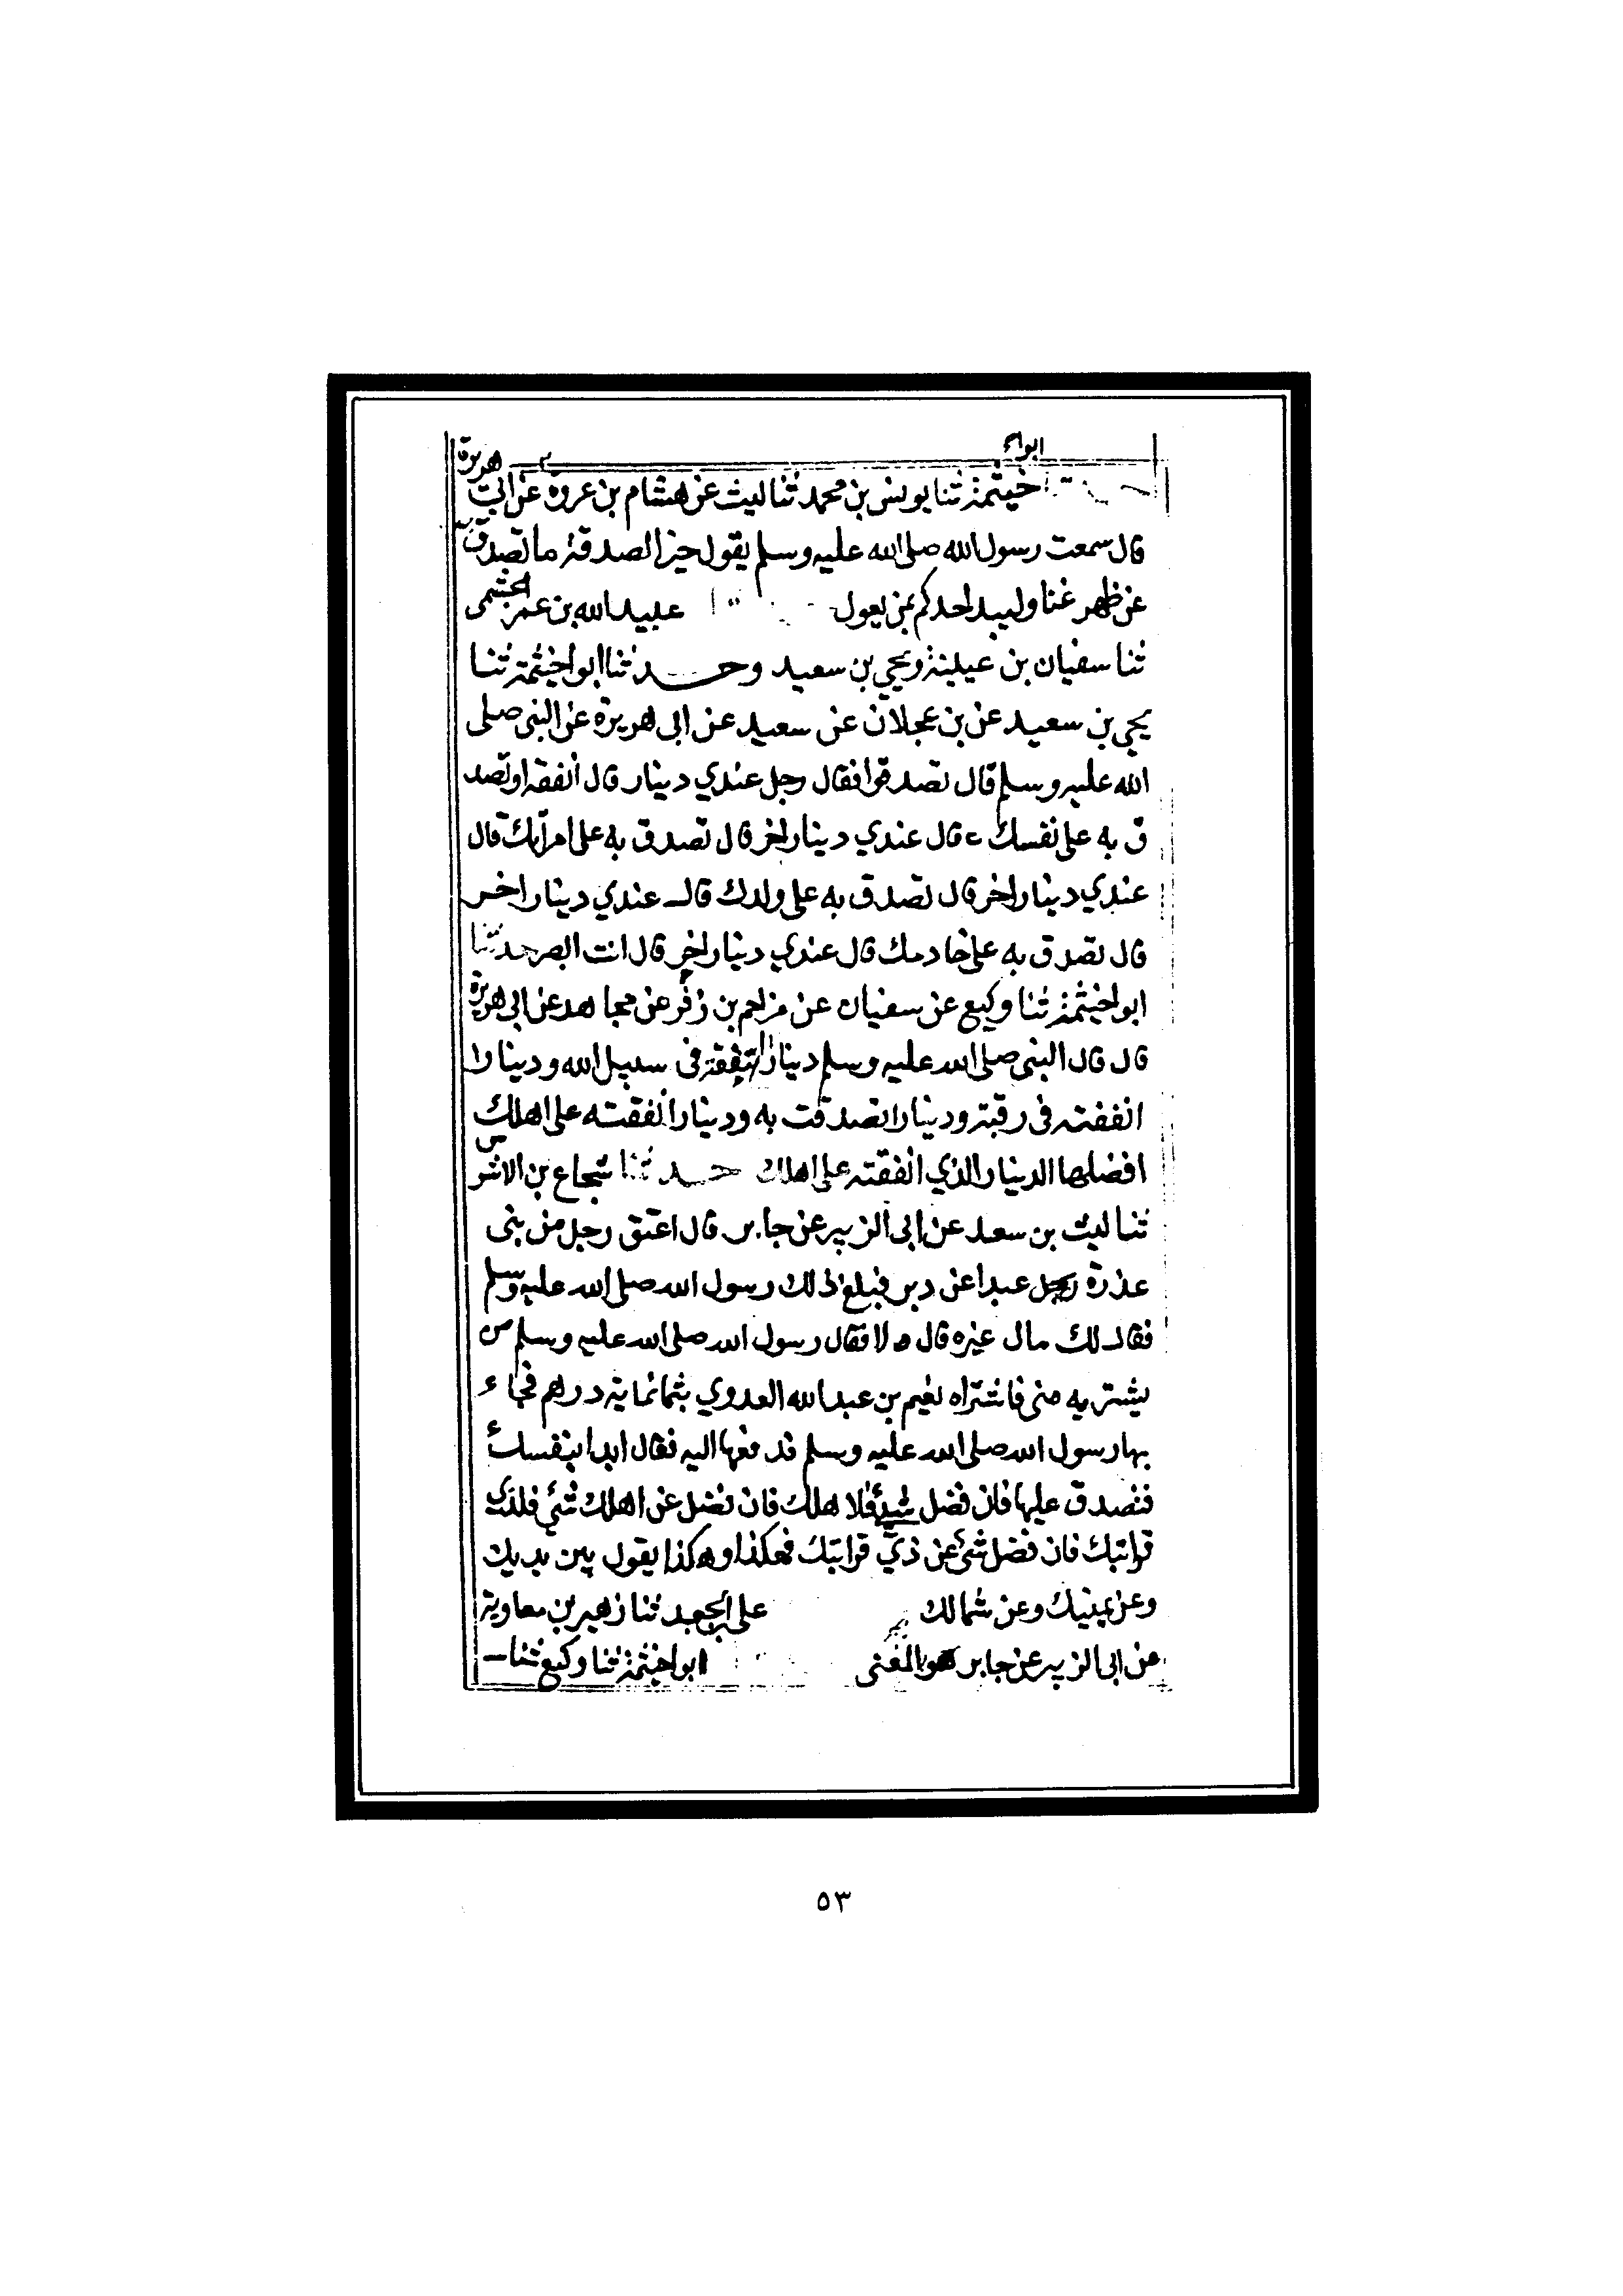 ابوا
خيثمة ثنا يونس بن محمد ثنا ليث عن هشام بن عروة عن ابي هريرة
قال سمعت رسول الله صلى الله عليه وسلم يقول خير الصدقة ما تصدق
عن ظهر غنا وليبد احدكم بمن يعول عبيد الله بن عمر الجشمى
ثنا سفيان بن عيينة ويحيى بن سعيد وحدثنا ابوا خيثمة ثنا
يحيى بن سعيد عن بن عجلان عن سعيد عن ابى هريرة عن النبى صلى
الله عليه وسلم قال تصدقوا فقال رجل عندي دينار قال انفقه او تصد
ق به على نفسك قال عندي دينار اخر قال تصدق به على امراتك قال
عندي دينار اخر قال تصدق به على ولدك قال عندي دينار اخر
قال تصدق به على خادمك قال عندي دينار اخر قال انت ابصر حدثنا
ابوا خيثمة ثنا وكيع عن سفيان عن مزاحم بن زفر عن مجاهد عن ابى هريرة
قال قال النبى صلى الله عليه وسلم دينارا انفقته فى سبيل الله ودينارا
انفقته فى رقبة ودينارا تصدقت به ودينارا انفقته على اهلك
افضلها الدينار الذي انفقته على اهلك حدثنا شجاع بن الاشرس
ثنا ليث بن سعد عن ابى الزبير عن جابر قال اعتق رجل من بنى
عذرة رجل عبدا عن دبر فبلغ ذلك رسول الله صلى الله عليه وسلم
فقال لك مال غيره قال لا فقال رسول الله صلى الله عليه وسلم من
يشتريه منى فاشتراه نعيم بن عبد الله العدوي بثمانماية درهم فجاء
بها رسول الله صلى الله عليه وسلم فدفعها اليه فقال ابدا بنفسك
فتصدق عليها فان فضل شيئ فلاهلك فان فضل عن اهلك شئ فلذى
قرابتك فان فضل شئ عن ذي قرابتك فهكذا وهكذا يقول بين يديك
وعن يمينك وعن شمالك على بن الجعد ثنا زهير بن معاوية
عن ابى الزبير عن جابر نحو المعنى ابوا خيثمة ثنا وكيع ثنا
٥٣